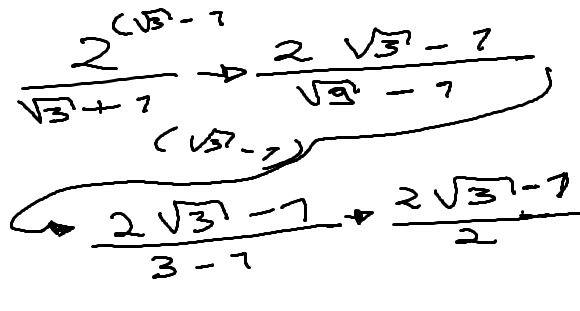 2^(√3 - 1 / √3 + 1 → 2 √3 - 1 / √9 - 1
(√3 - 1)
→ 2 √3 - 1 / 3 - 1 → 2 √3 - 1 / 2